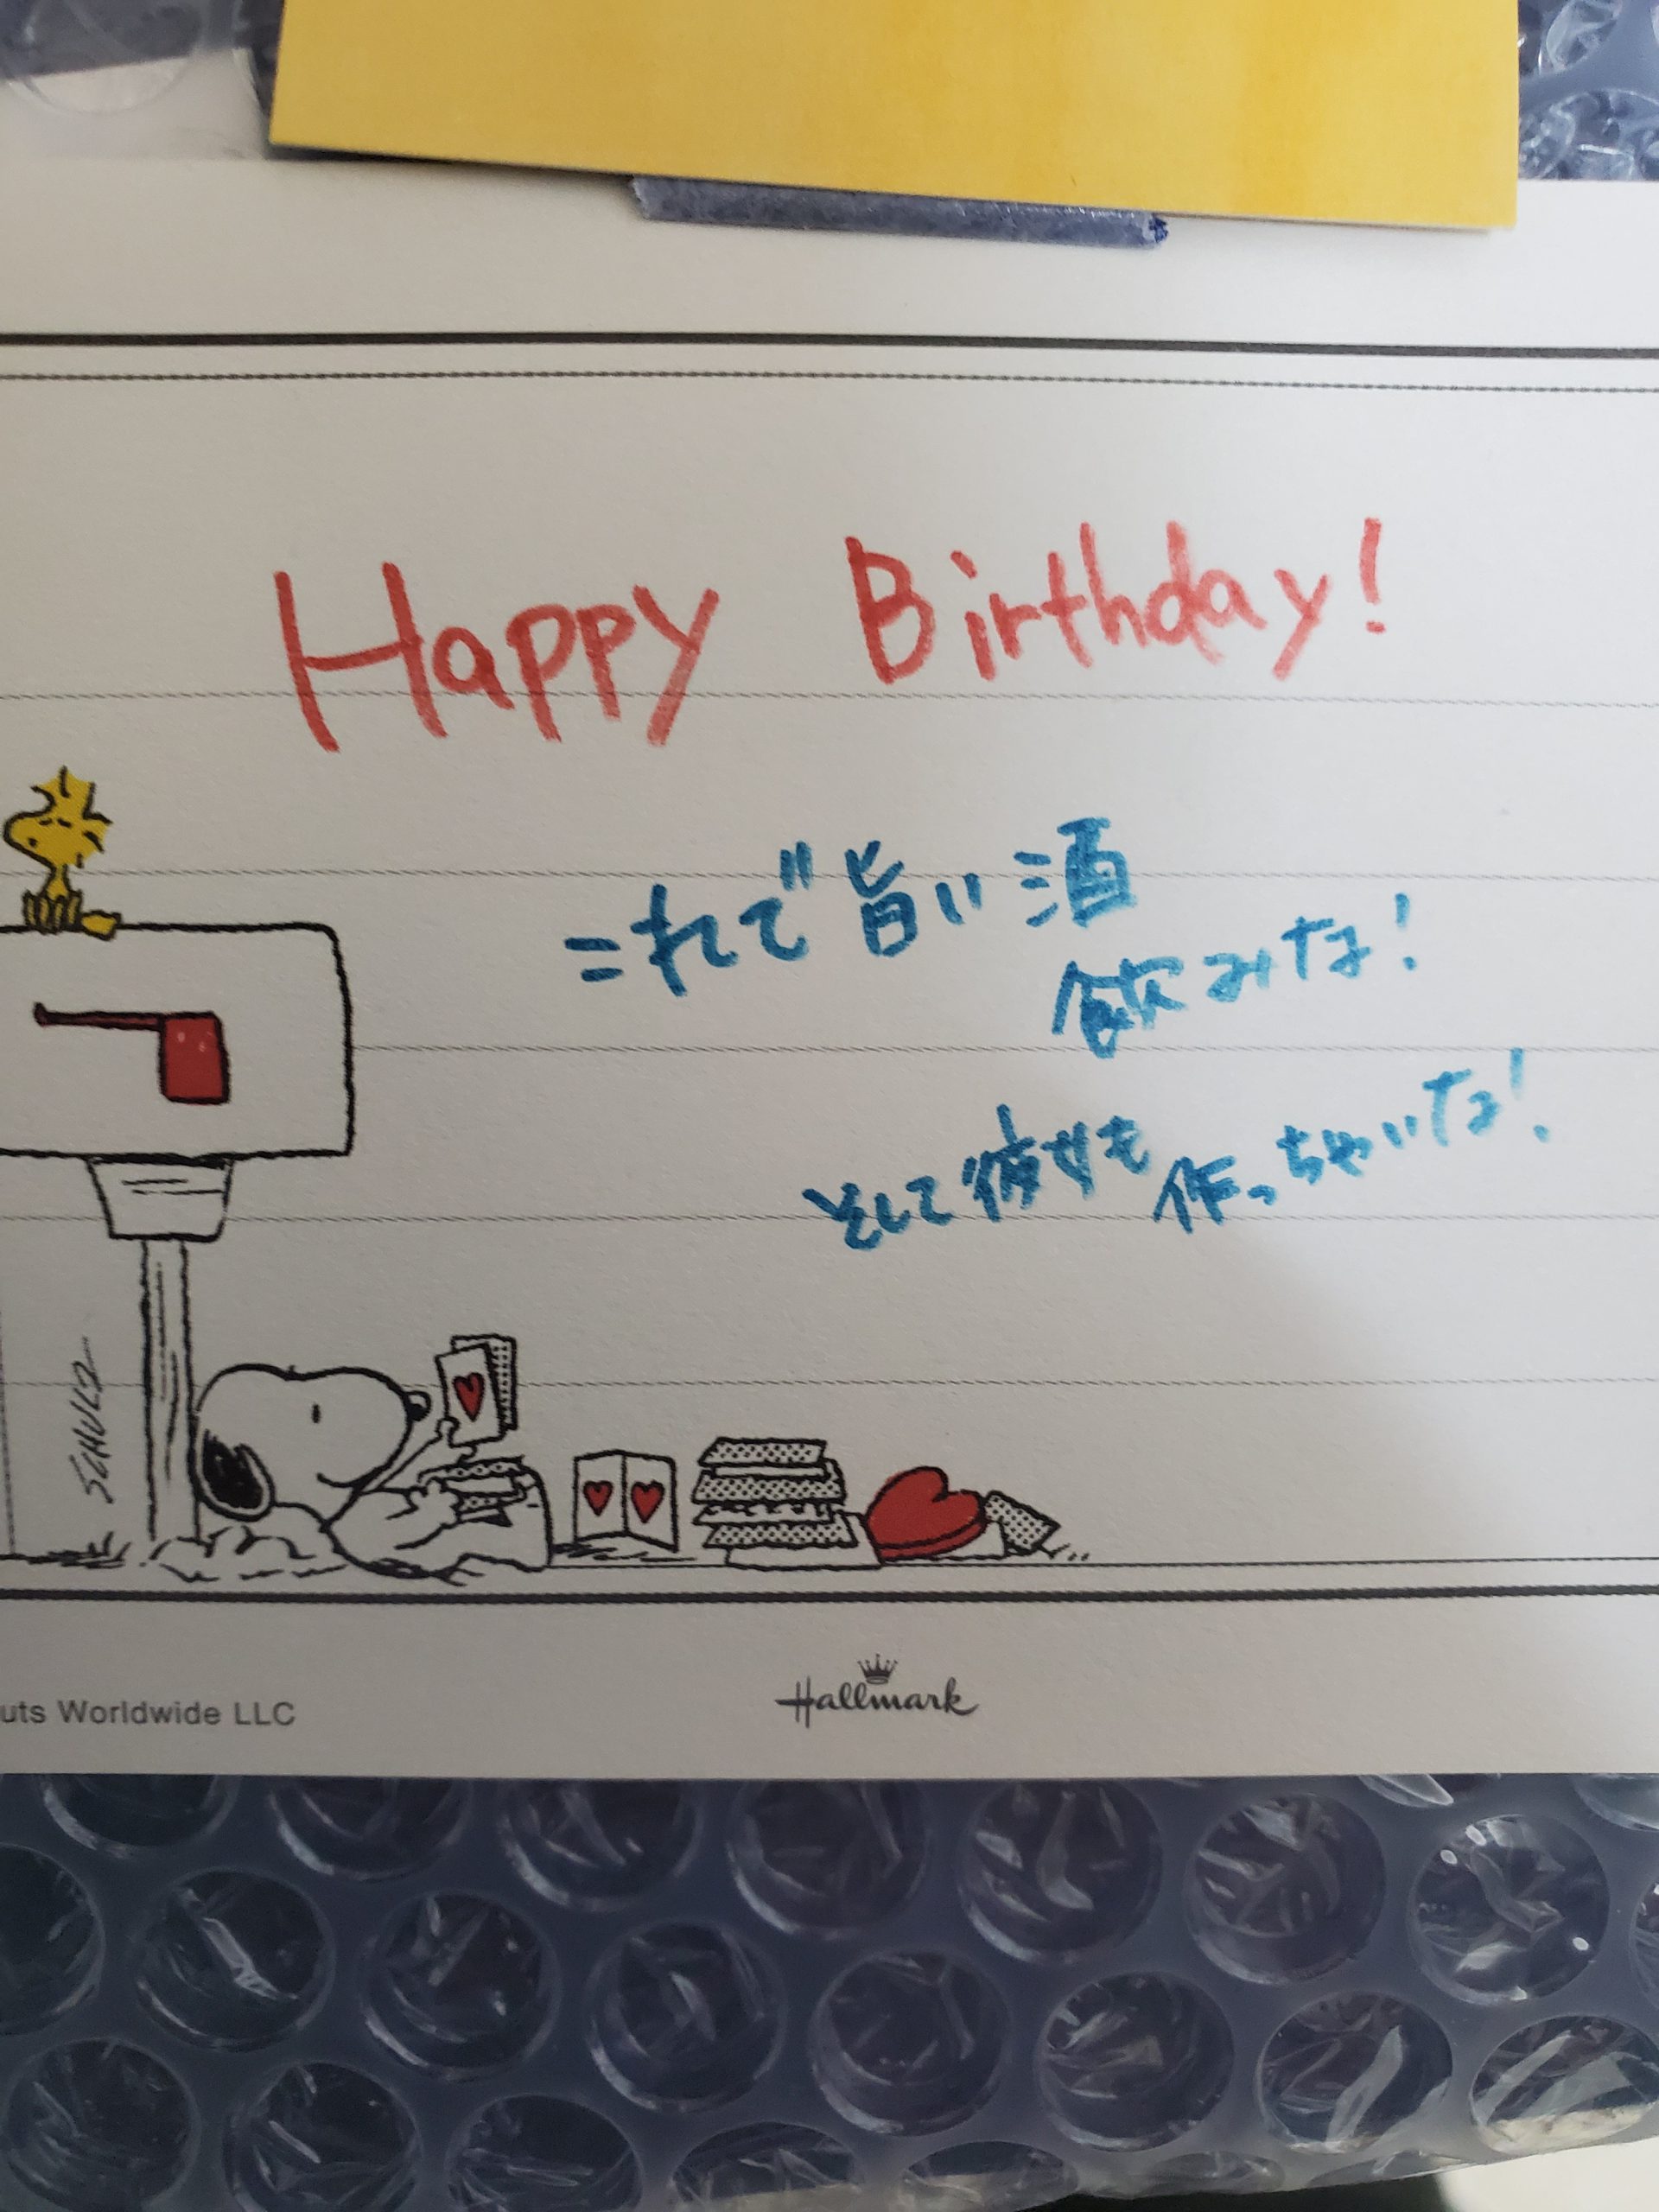 Happy Birthday!
これで旨い酒
飲みな!
そして彼女も作っちゃいな!
SCHULZ
uts Worldwide LLC
Hallmark